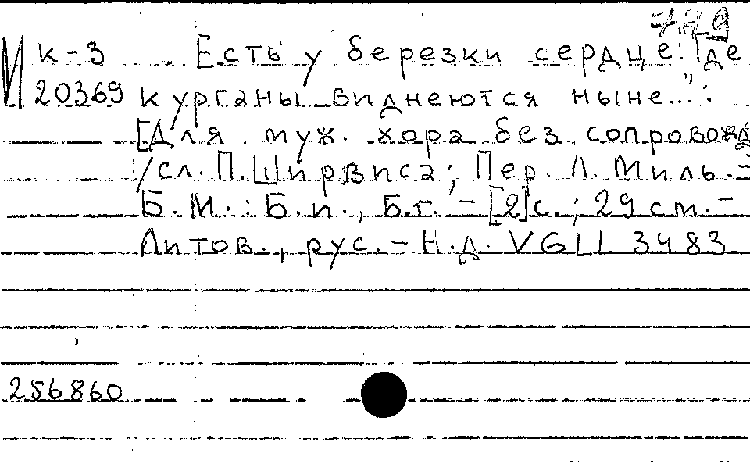 К-3 Есть у березки сердце: "Где
20369 курганы виднеются ныне...":
[Для муж. хора без сопровожд
/сл. П. Ширвиса; Пер. Л. Миль.-
Б.М.: Б.и., Б.г. - [2]с.; 29 см.-
Литов., рус. - Н.д. VGLL 3483
256860